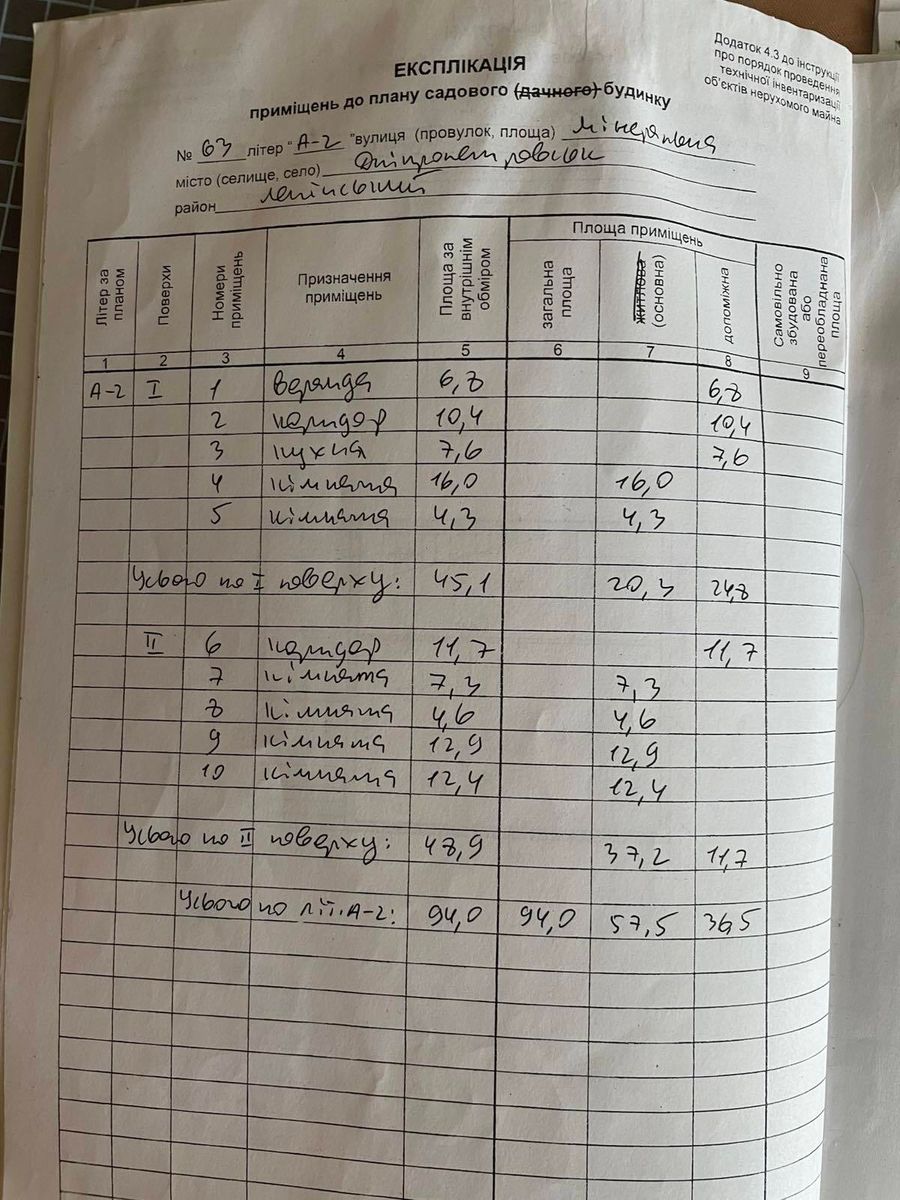 Додаток 4.3 до інструкції
про порядок проведення
технічної інвентаризації
об'єктів нерухомого майна
ЕКСПЛІКАЦІЯ
приміщень до плану садового (дачного) будинку
№ 63 літер "А-2" вулиця (провулок, площа) Мінеральна
місто (селище, село) Дніпропетровськ
район Ленінський
Літер за планом Поверхи Номери приміщень Призначення приміщень Площа за внутрішнім обміром Площа приміщень загальна площа житлова (основна) допоміжна Самовільно збудована або переобладнана площа
1 2 3 4 5 6 7 8 9
А-2 I 1 веранда 6,8 6,8
2 коридор 10,4 10,4
3 кухня 7,6 7,6
4 кімната 16,0 16,0
5 кімната 4,3 4,3
Усього по I поверху: 45,1 20,3 24,8
II 6 коридор 11,7 11,7
7 кімната 7,3 7,3
8 кімната 4,6 4,6
9 кімната 12,9 12,9
10 кімната 12,4 12,4
Усього по II поверху: 48,9 37,2 11,7
Усього по літ. А-2: 94,0 94,0 57,5 36,5